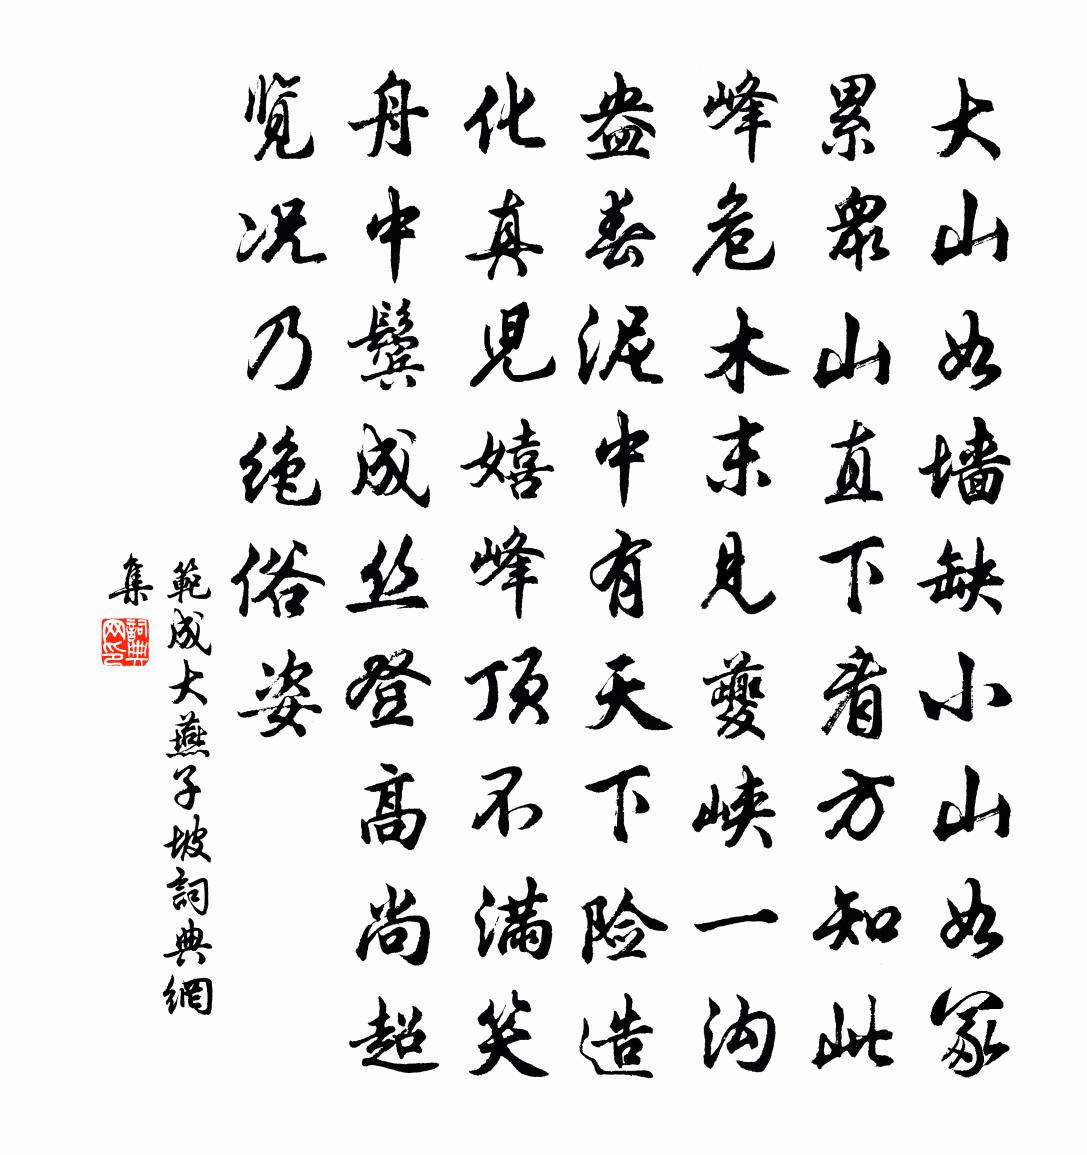 大山如墙缺小山如冢
累眾山直下看方知此
峰危木末见夔峡一沟
盎春泥中有天下险造
化真児嬉峰顶不满笑
舟中鬓成丝登高尚超
览况乃绝俗姿
範成大燕子坡詞典網
集
詞典
网印